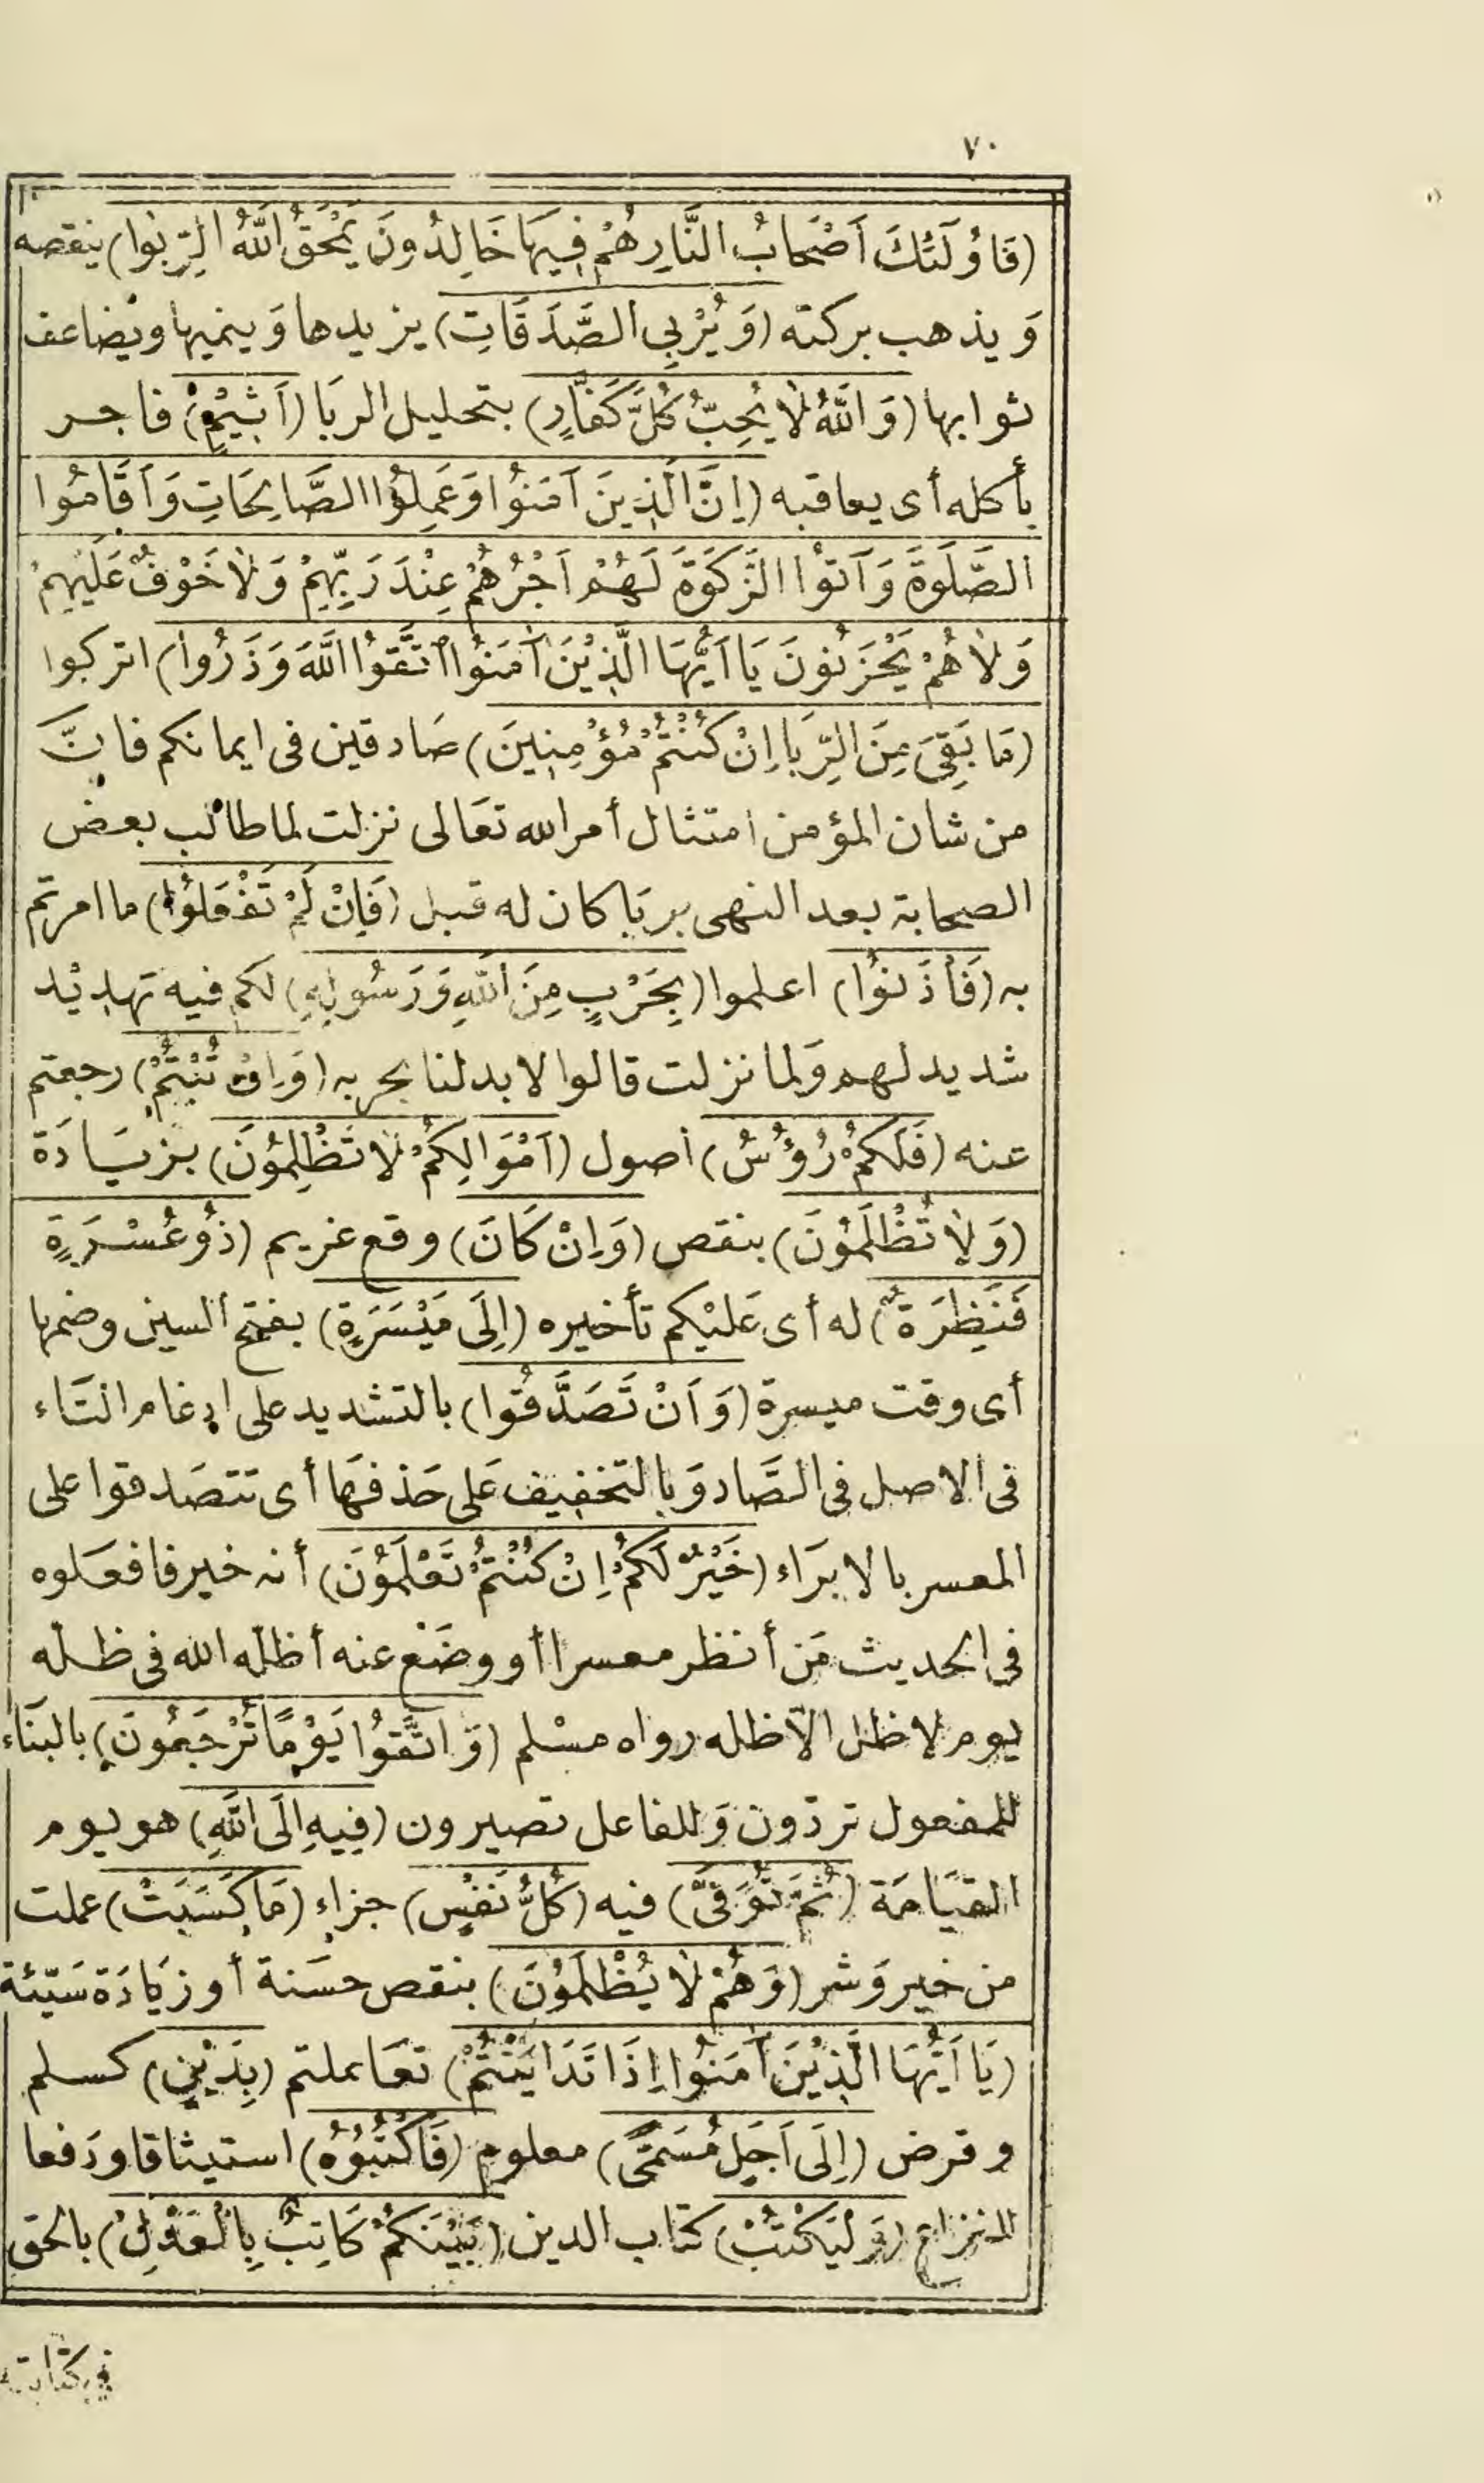 ٧٠
(فَأُولَئِكَ أَصْحَابُ النَّارِ هُمْ فِيهَا خَالِدُونَ يَمْحَقُ اللَّهُ الرِّبٰوا) ينقصه
وَيذهب بركته (وَيُرْبِي الصَّدَقَاتِ) يزيدها وَينميها ويضاعف
ثوابها (وَاللَّهُ لَا يُحِبُّ كُلَّ كَفَّارٍ) بتحليل الربَا (أَثِيمٍ) فاجر
بأكله أى يعاقبه (إِنَّ الَّذِينَ آمَنُوا وَعَمِلُوا الصَّالِحَاتِ وَأَقَامُوا
الصَّلَوةَ وَآتَوْا الزَّكَوَةَ لَهُمْ أَجْرُهُمْ عِنْدَ رَبِّهِمْ وَلَا خَوْفٌ عَلَيْهِمْ
وَلَا هُمْ يَحْزَنُونَ يَا أَيُّهَا الَّذِيْنَ آمَنُوا اتَّقَوُا اللَّهَ وَذَرُوا) اتركوا
(مَا بَقِىَ مِنَ الرِّبَا إِنْ كُنْتُمْ مُؤْمِنِينَ) صَادقين فى ايمانكم فانّ
من شان المؤمن امتثال أمر الله تعَالى نزلت لما طالب بعض
الصحابة بعد النهى بربَا كان له قبل (فَإِنْ لَمْ تَفْعَلُوا) ما امرتم
به (فَأْذَنُوا) اعلموا (بِحَرْبٍ مِنَ اللَّهِ وَرَسُولِهِ) لكم فيه تهديْد
شديد لهم وَلما نزلت قالوا لا بد لنا بحربه (وَإِنْ تُبْتُمْ) رجعتم
عنه (فَلَكُمْ رُؤُسُ) أصول (أَمْوَالِكُمْ لَا تَظْلِمُوْنَ) بزيَادَة
(وَلَا تُظْلَمُوْنَ) بنقص (وَإِنْ كَانَ) وقع غريم (ذُوْ عُسْرَةٍ
فَنَظِرَةٌ) له أى عَليْكم تأخيره (إِلَى مَيْسَرَةٍ) بفتح السين وضمها
أى وقت ميسرة (وَأَنْ تَصَّدَّقُوا) بالتشديد على ادغام التَاء
فى الاصل فى الصَّاد وَبالتخفيف عَلى حَذفهَا أى تتصَدقوا على
المعسر بالابرَاء (خَيْرٌ لَكُمْ إِنْ كُنْتُمْ تَعْلَمُوْنَ) أنه خير فافعَلوه
فى الحديث مَن أنظر معسرا أو وضَع عنه أظله الله فى ظله
يوم لا ظل الاّ ظله رواه مسْلم (وَاتَّقُوا يَوْمًا تُرْجَعُونَ) بالبنَاء
للمفعول تردّون وَللفاعل تصيرون (فِيهِ إِلَى اللَّهِ) هو يوم
القيَامَة (ثُمَّ تُوَفَّى) فيه (كُلُّ نَفْسٍ) جزاء (مَا كَسَبَتْ) عملت
من خير وَشر (وَهُمْ لَا يُظْلَمُوْنَ) بنقص حسَنة أو زيَادَة سَيّئة
(يَا أَيُّهَا الَّذِيْنَ آمَنُوا إِذَا تَدَايَنْتُمْ) تعَاملتم (بِدَيْنٍ) كسلم
وقرض (إِلَى أَجَلٍ مُسَمًّى) معلوم (فَاكْتُبُوْهُ) استيثاقا ودَفعا
للنزاع (وَلْيَكْتُبْ) كتاب الدين (بَيْنَكُمْ كَاتِبٌ بِالْعَدْلِ) بالحق
فى كتابته